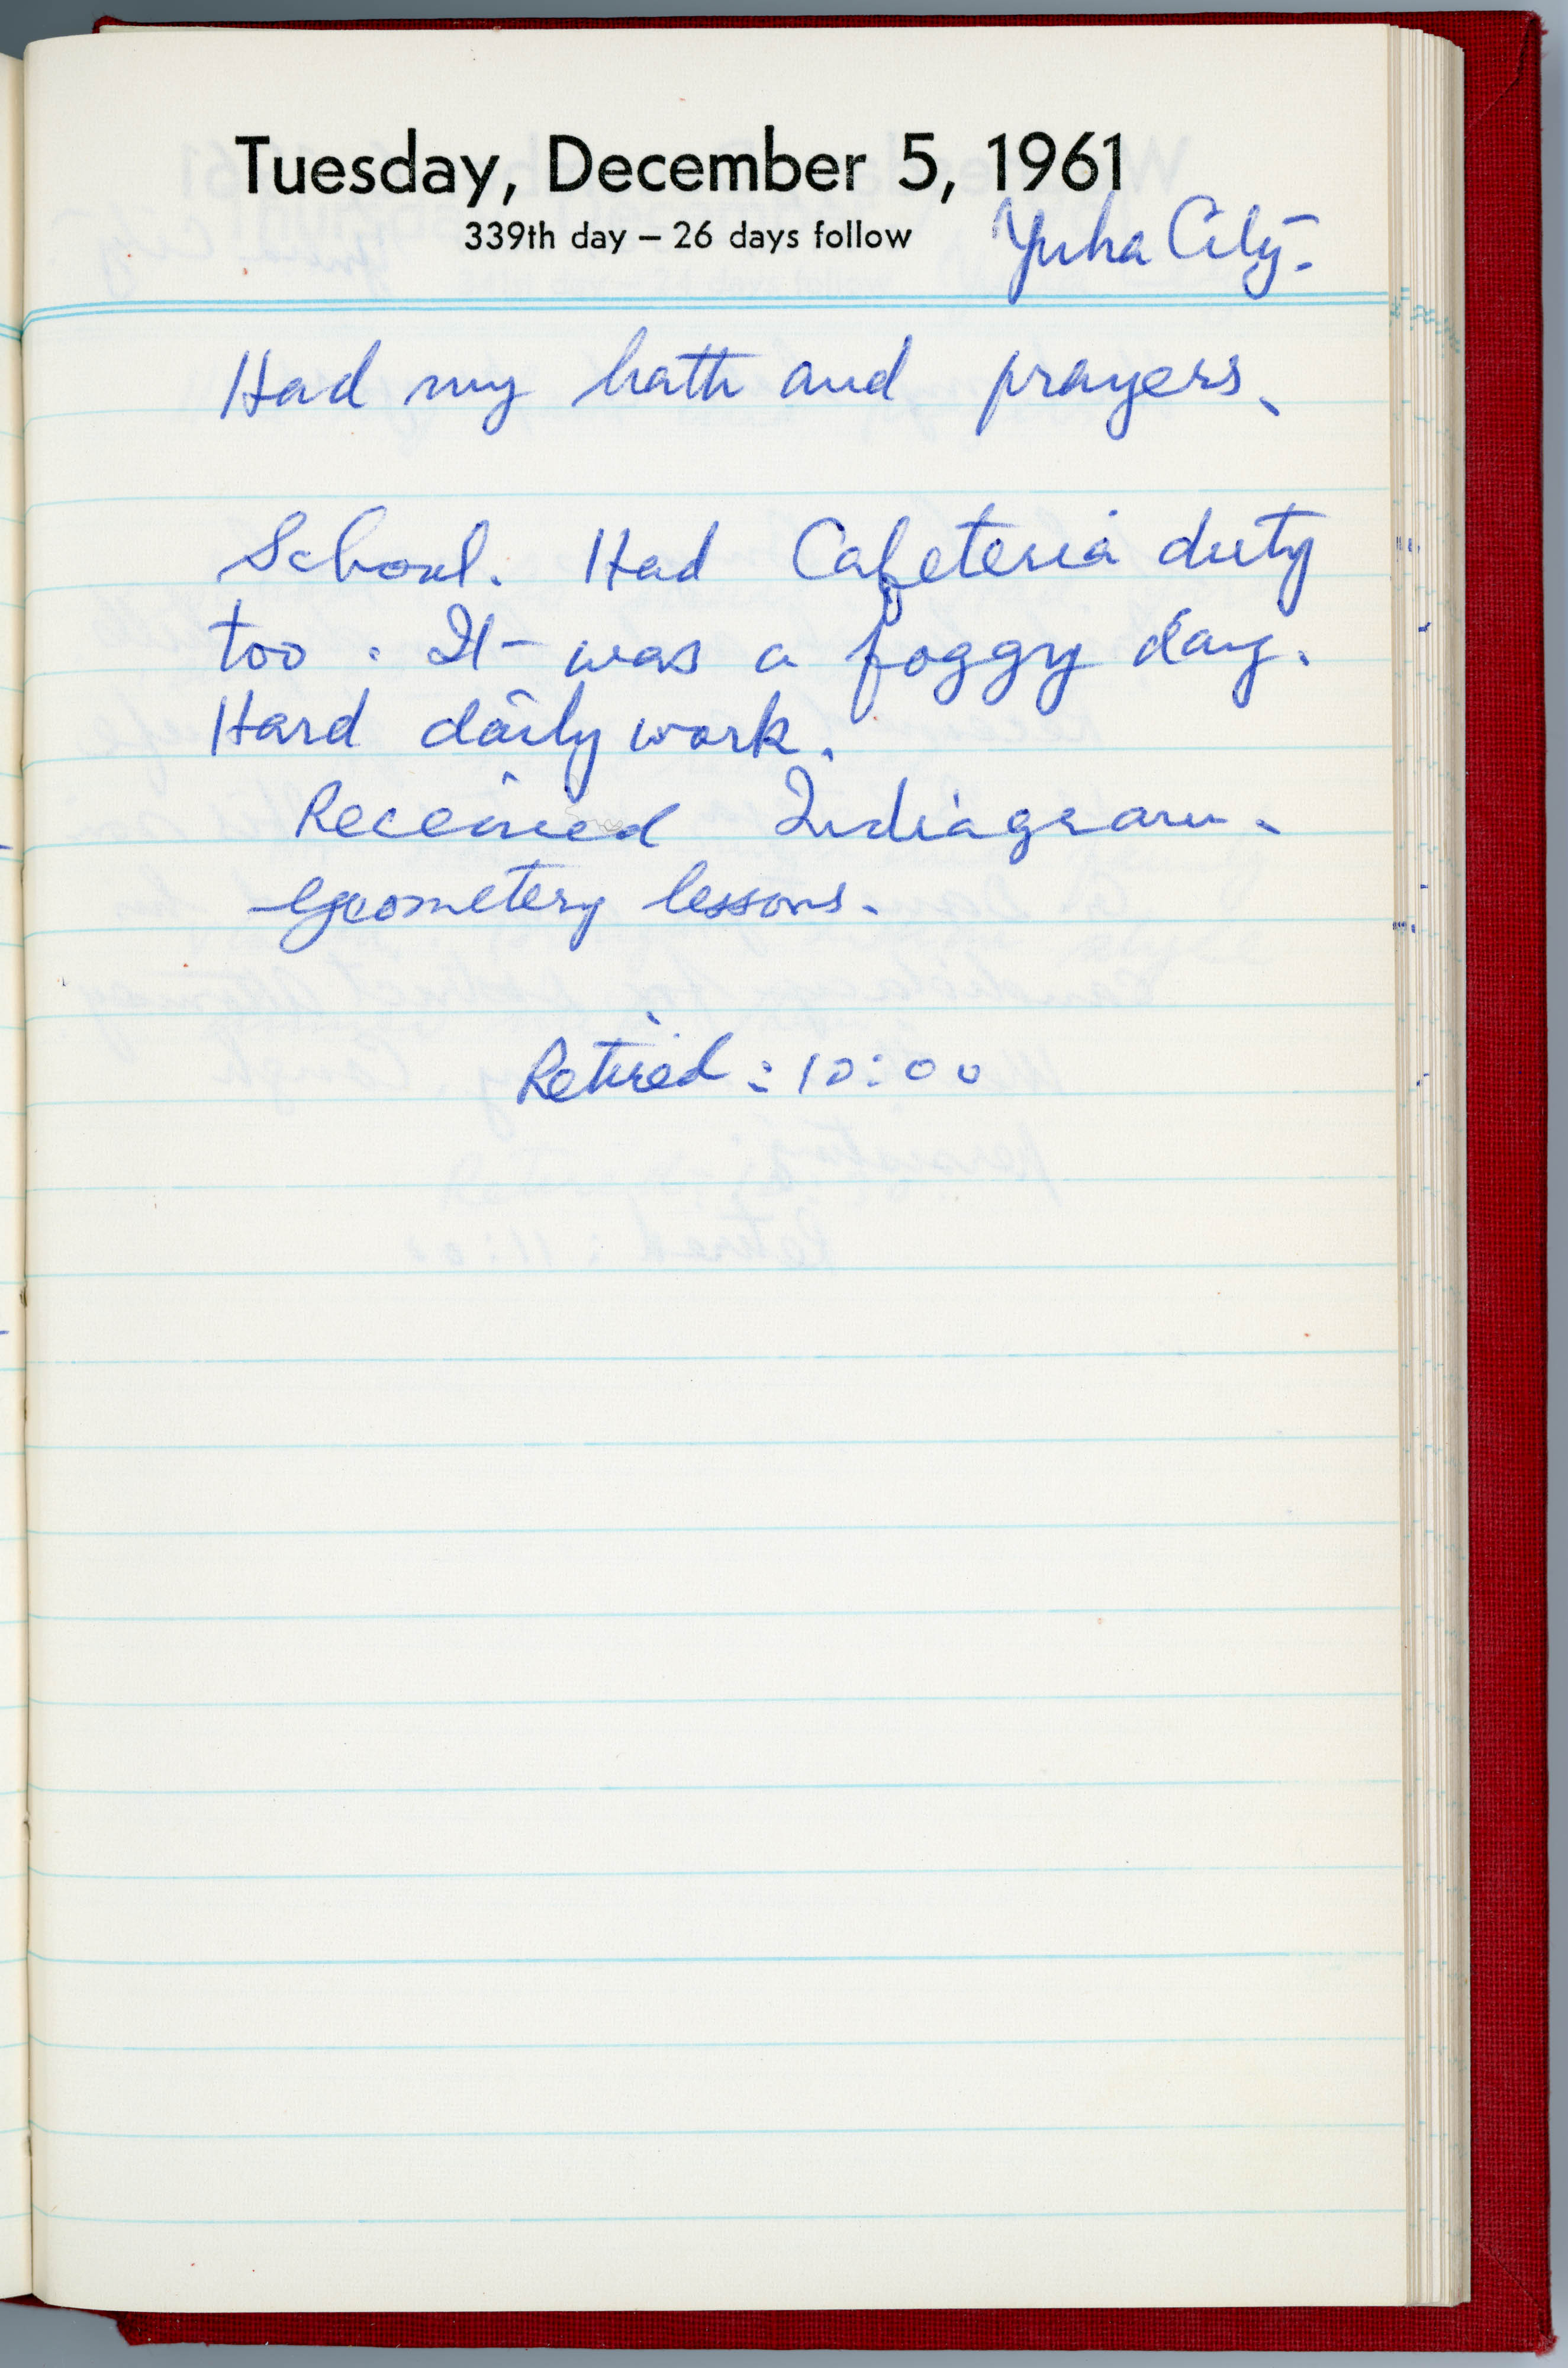 Tuesday, December 5, 1961
339th day – 26 days follow
Yuba City.
Had my bath and prayers.
School. Had Cafeteria duty
too. It was a foggy day.
Hard daily work.
Received Indiagram.
Geometery lessons.
Retired : 10:00